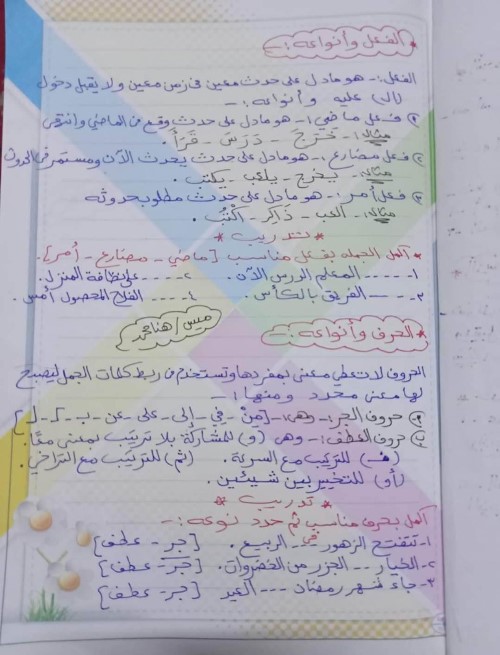 * الفعل وأنواعه :-
الفعل :- هو ما دل على حدث معين فى زمن معين ولا يقبل دخول
(ال) عليه وأنواعه :-
① فعل ماضي :- هو ما دل على حدث وقع فى الماضي وانتهى
مثال :- خَرَجَ - دَرَسَ - قَرَأَ .
② فعل مضارع :- هو ما دل على حدث يحدث الآن ومستمر فى الحدوث
مثال :- يخرج - يلعب - يكتب .
③ فعل أمر :- هو ما دل على حدث مطلوب حدوثه
مثال :- العب - ذَاكِر - اكْتُب .
* تدريب *
* أكمل الجمله بفعل مناسب [ماضي - مضارع - أمر].
١- ..... المعلم الدرس الآن . ٢- .... على نظافة المنزل .
٣- .... الفريق بالكأس . ٤- .... الفلاح المحصول أمس .
ميس/هنا محمد
* الحرف وأنواعه :-
الحروف لا تعطي معنى بمفردها وتستخدم فى ربط كلمات الجمل ليصبح
لها معنى محدد ومنها :-
حروف الجر :- وهى :- [مِنْ - فِي - إلى - على - عن - بـ - كـ - لـ]
حروف العطف :- وهى (و) للمشاركة بلا ترتيب بمعنى معًا .
(فـ) للترتيب مع السرعة . (ثم) للترتيب مع التراخي .
(أو) للتخيير بين شيئين .
* تدريب *
أكمل بحرف مناسب ثم حدد نوعه :-
١- تتفتح الزهور .فى. الربيع . [جر - عطف]
٢- الخيار ... الجزر من الخضروات . [جر - عطف]
٣- جاء شهر رمضان .... العيد [جر - عطف]